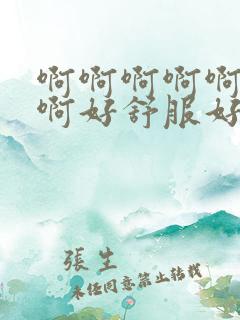 啊啊啊啊啊
啊好舒服好
張生
未经同意禁止转载